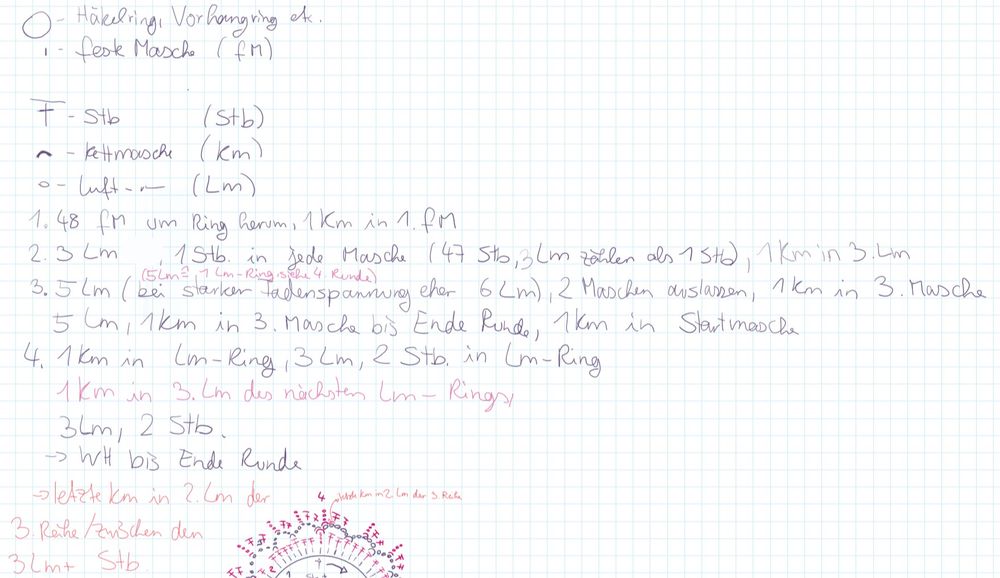 - Häkelring, Vorhangring etc.
- feste Masche (fM)
- Stb (Stb)
- Kettmasche (Km)
- Luft- (Lm)
1. 48 fM um Ring herum, 1 Km in 1. fM
2. 3 Lm , 1 Stb. in jede Masche (47 Stb, 3 Lm zählen als 1 Stb), 1 Km in 3. Lm
(5 Lm = 1 Lm-Ring siehe 4. Runde)
3. 5 Lm (bei starker Fadenspannung eher 6 Lm), 2 Maschen auslassen, 1 Km in 3. Masche
5 Lm, 1 Km in 3. Masche bis Ende Runde, 1 Km in Startmasche
4. 1 Km in Lm-Ring, 3 Lm, 2 Stb. in Lm-Ring
1 Km in 3. Lm des nächsten Lm-Rings,
3 Lm, 2 Stb.
-> WH bis Ende Runde
-> letzte Km in 2. Lm der
3. Reihe/zwischen den
3 Lm + Stb
4 letzte Km in 2. Lm der 3. Reihe